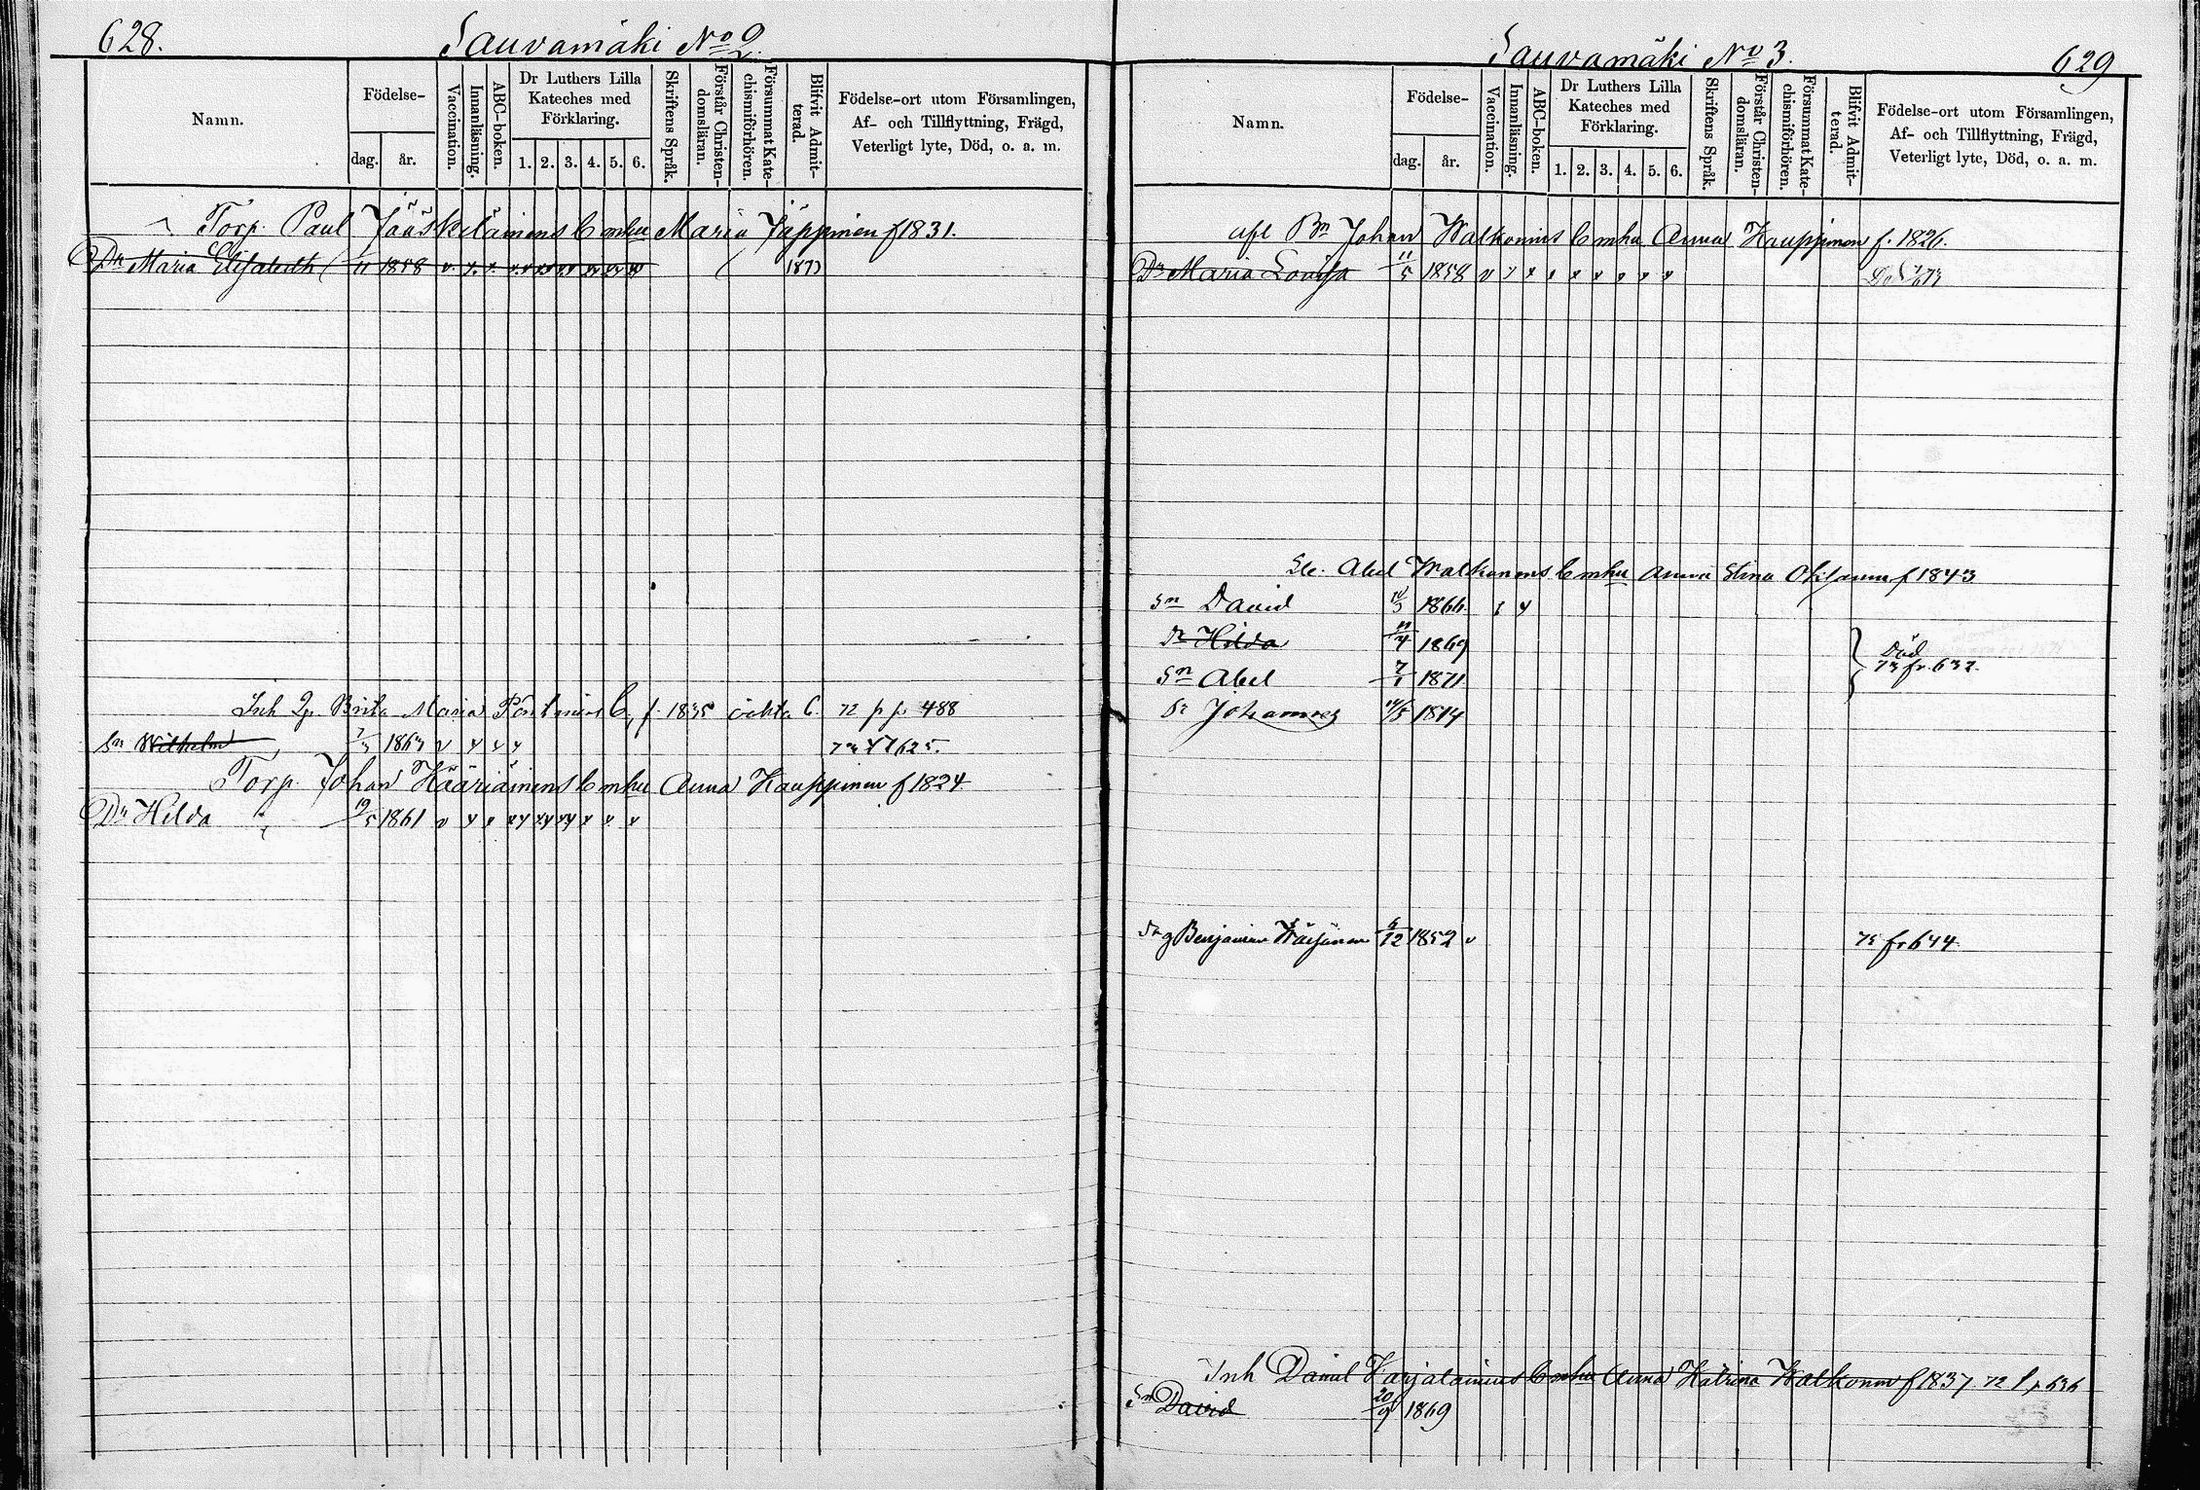 628.
Sauvamäki No 2.
Namn.
Födelse-
dag.
år.
Vaccination.
Innanläsning.
ABC-boken.
Dr Luthers Lilla
Kateches med
Förklaring.
1. 2. 3. 4. 5. 6.
Skriftens Språk.
Förstår Christen-
domsläran.
Försummat Kate-
chismiförhören.
Blifvit Admit-
terad.
Födelse-ort utom Församlingen,
Af- och Tillflyttning, Frägd,
Veterligt lyte, Död, o. a. m.
Torp. Paul Jääskeläinens Enka Maria Jäppinen f 1831.
Dr Maria Elisabeth 11 1858 1873
Inh Brita Maria f. 1835 72 p p 488
Sn Wilhelm 1863 625.
Torp. Johan Hääriäinens Enka Anna Kauppinen f 1824
Dr Hilda 19/5 1861
Sauvamäki No 3.
629
Namn.
Födelse-
dag.
år.
Vaccination.
Innanläsning.
ABC-boken.
Dr Luthers Lilla
Kateches med
Förklaring.
1. 2. 3. 4. 5. 6.
Skriftens Språk.
Förstår Christen-
domsläran.
Försummat Kate-
chismiförhören.
Blifvit Admit-
terad.
Födelse-ort utom Församlingen,
Af- och Tillflyttning, Frägd,
Veterligt lyte, Död, o. a. m.
Johan Walkonens Anna Kauppinen f. 1826.
Dr Maria Lovisa 11/5 1858
Abel Walkonens Anna Stina f 1843
Sn David 1866
Dr Hilda 11/4 1869 Död
Sn Abel 7/1 1871 73 fr 632.
Johannes 1874
Benjamin 6/12 1852 75 fr 644
Inh Daniel Karjalainens Anna Katrina Walkonen f 1837. 72 636
Sn David 20/9 1869